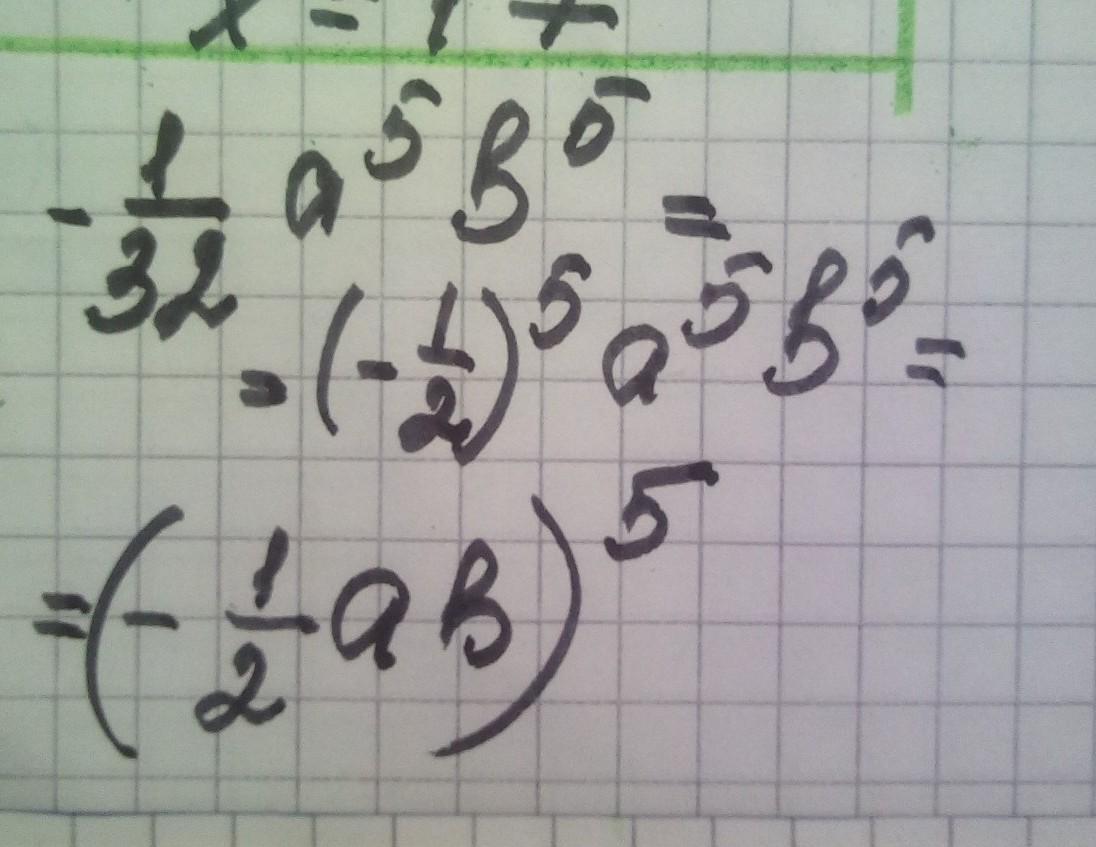 x = 1 +
-1/32 a⁵ b⁵ =
= (-1/2)⁵ a⁵ b⁵ =
= (-1/2 ab)⁵